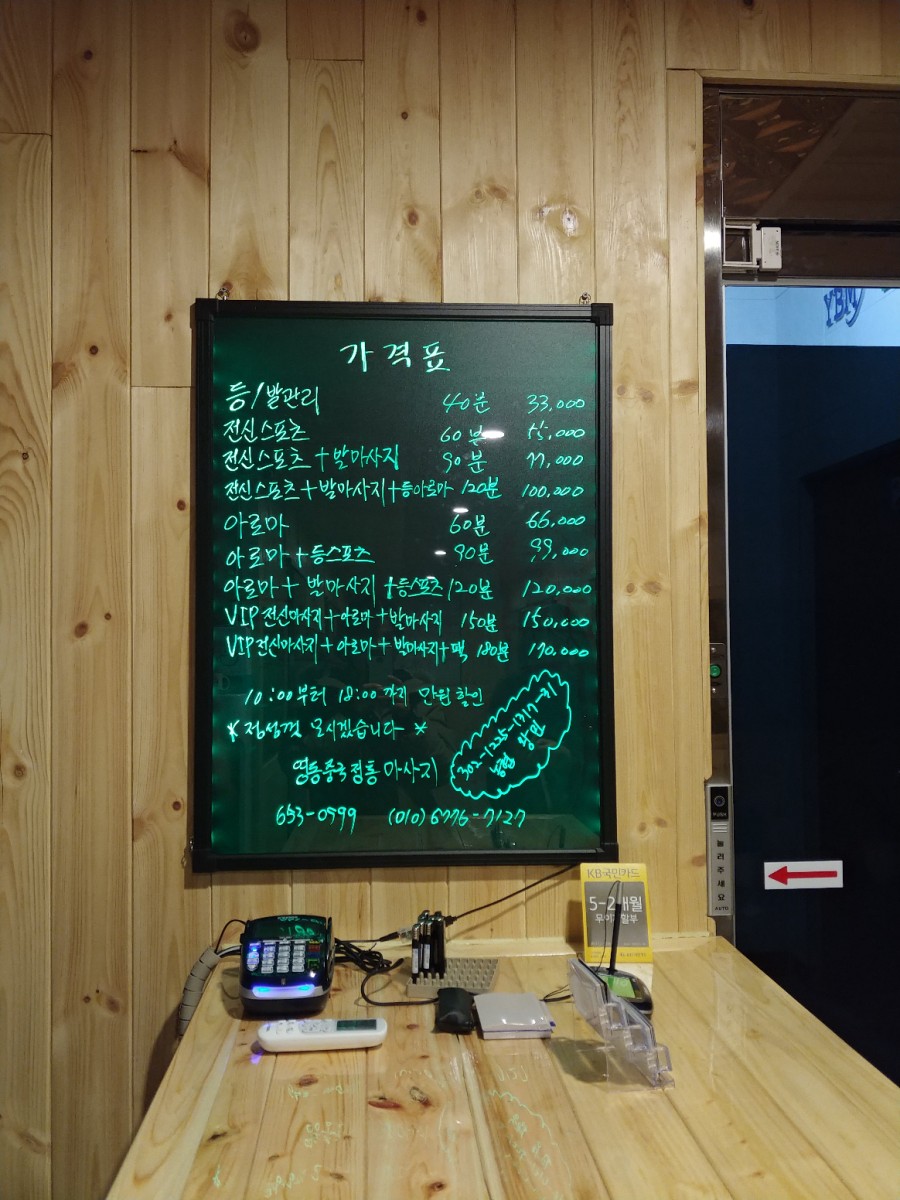 가격표
등/발관리 40분 33,000
전신스포츠 60분 55,000
전신스포츠+발마사지 90분 77,000
전신스포츠+발마사지+등아로마 120분 100,000
아로마 60분 66,000
아로마+등스포츠 90분 99,000
아로마+발마사지+등스포츠 120분 120,000
VIP전신마사지+아로마+발마사지 150분 150,000
VIP전신마사지+아로마+발마사지+팩 180분 170,000
10:00부터 18:00까지 만원할인
*정성껏 모시겠습니다*
302-1225-1317-31
농협
영등중국정통마사지
653-0999 (010)6776-7127
YBM
KB국민카드
5-2개월
무이자할부
눌러주세요
AUTO